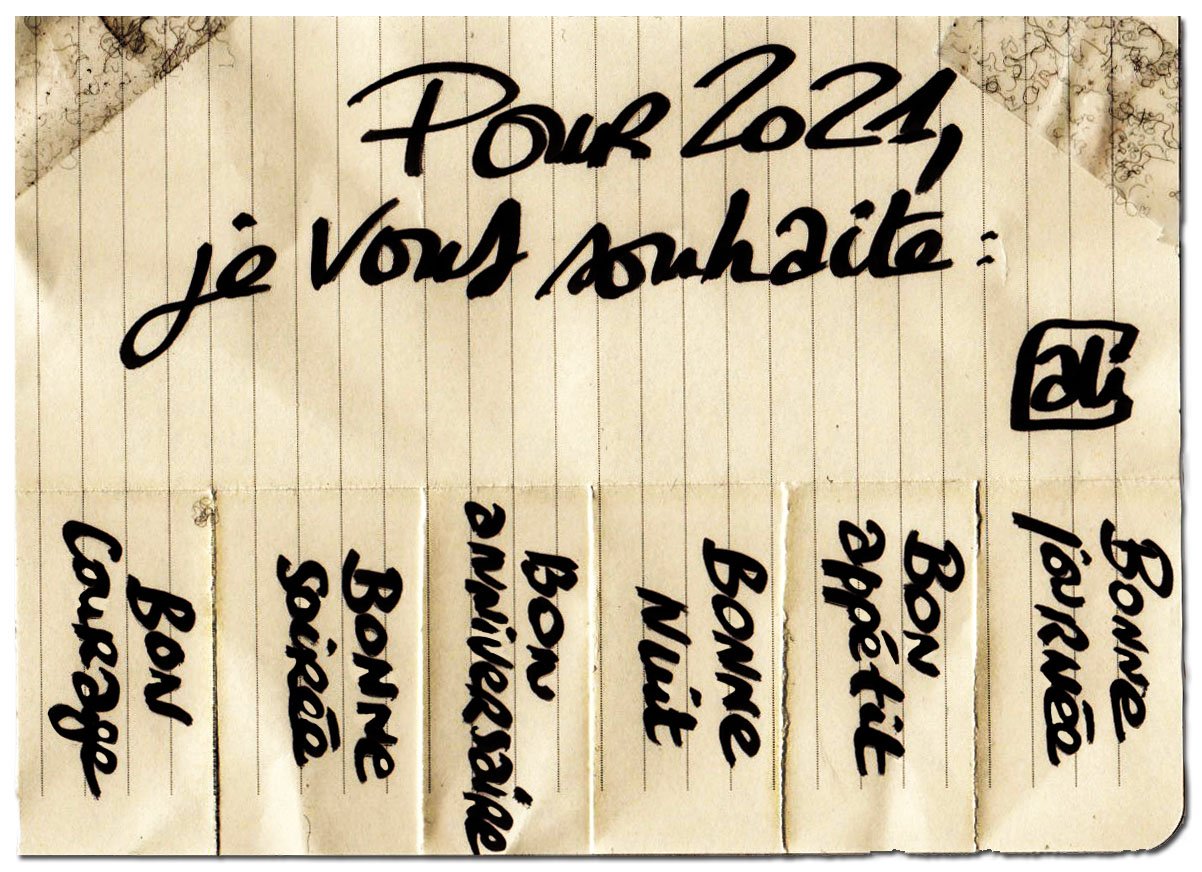 Pour 2021,
je vous souhaite :
ali
Bon
courage
Bonne
soirée
Bon
anniversaire
Bonne
Nuit
Bon
appétit
Bonne
journée